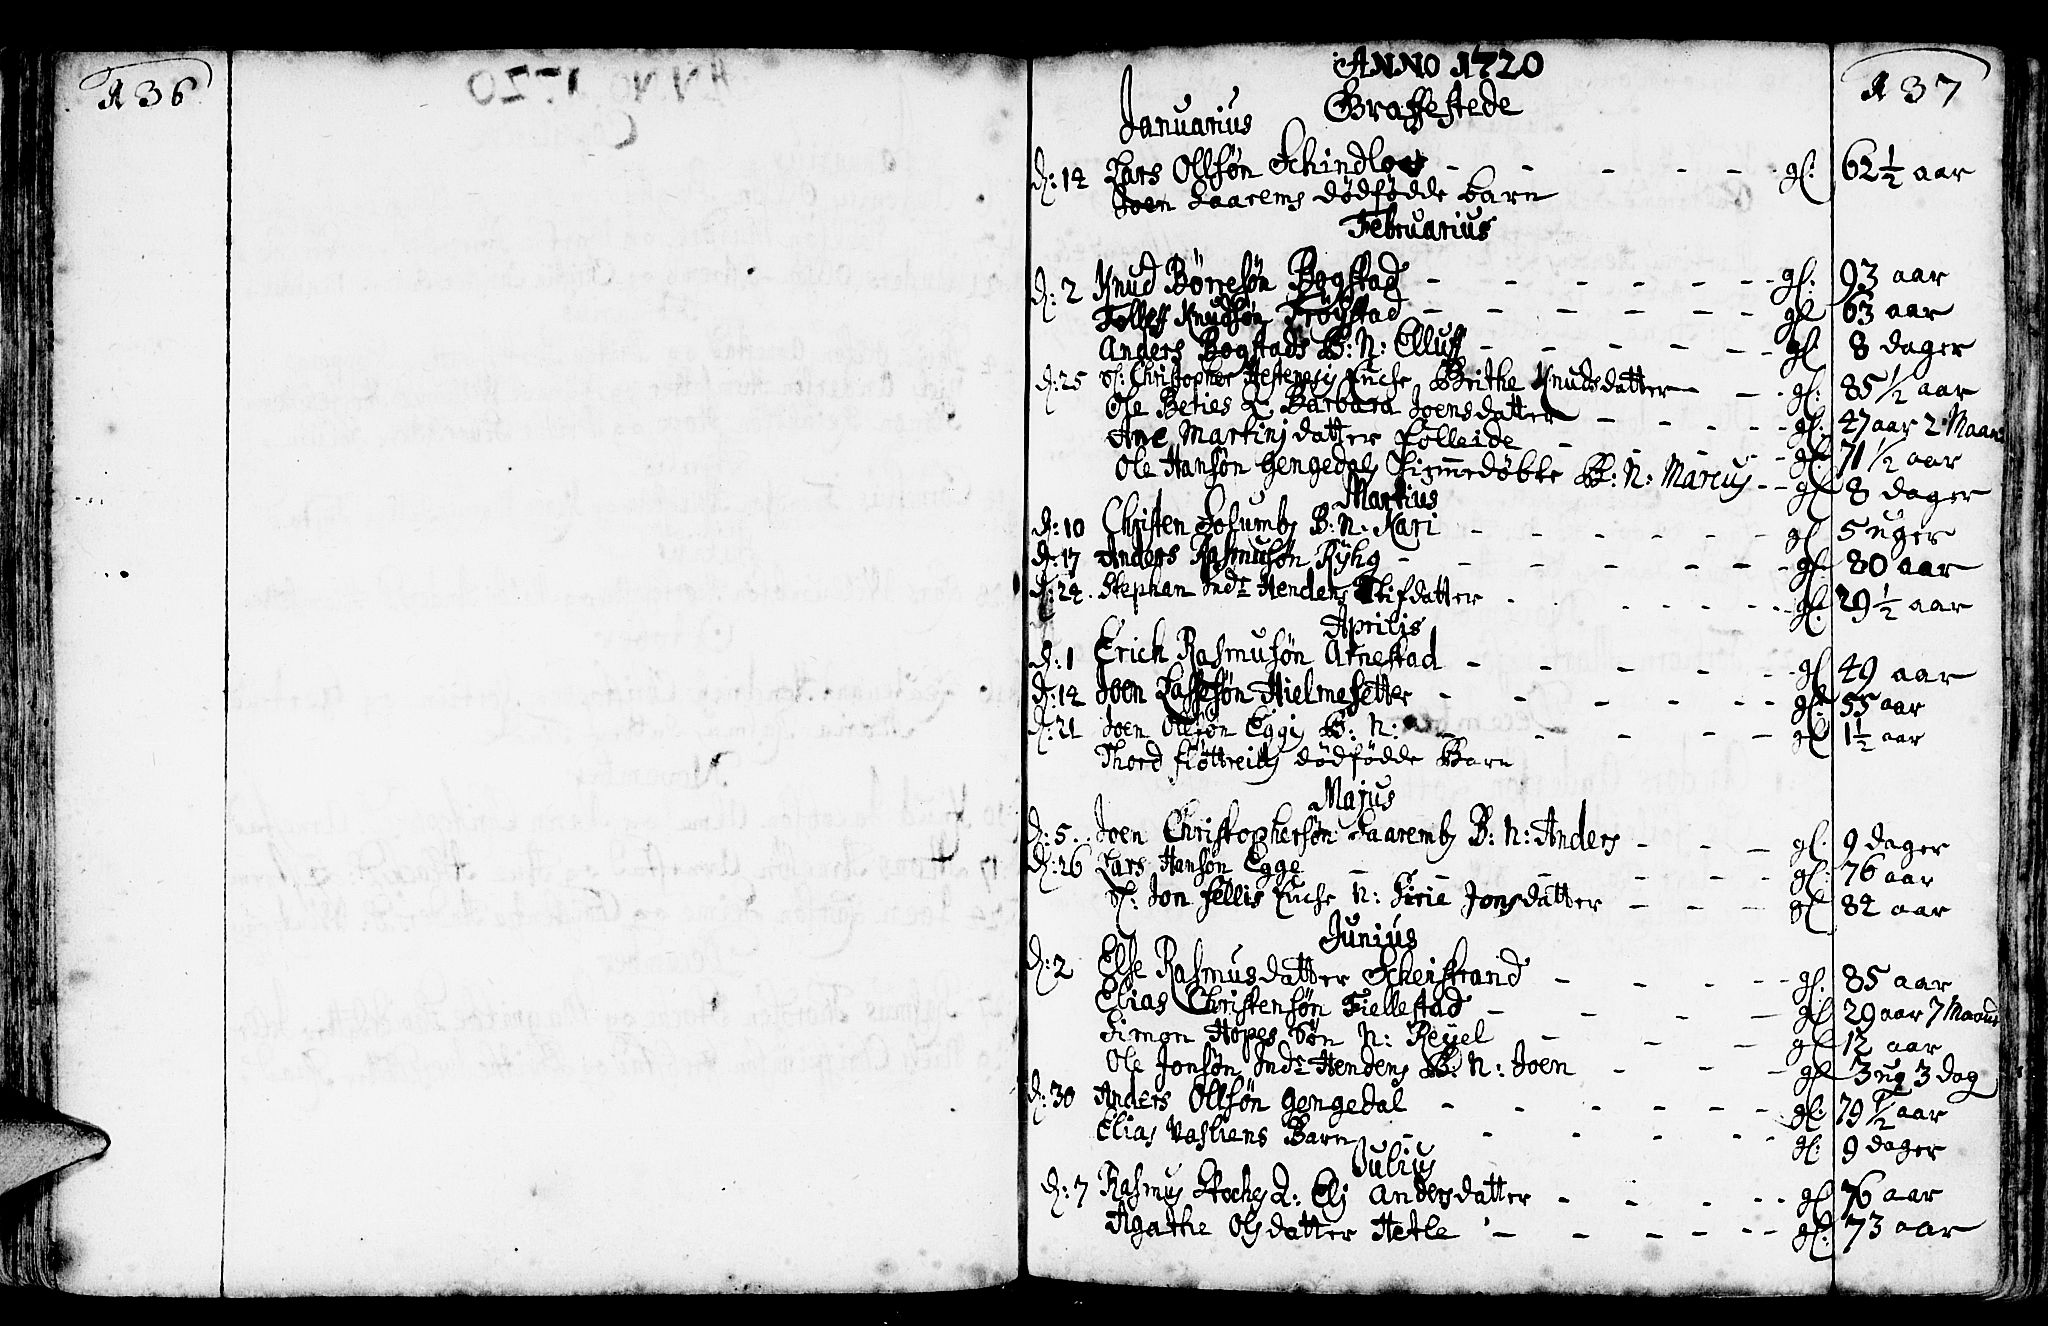 136
137
ANNO 1720
Graffestede
Januarius
d: 14 Lars Ollsøn Schindloes - - - - - gl: 62½ aar
Joen Saarems dødfødde barn
Februarius
d: 2 Knud Børresøn Bogstad - - - - - gl: 93 aar
Tolleff Knudsøn Frøystad - - - - - gl 63 aar
Anders Bogstads B: N: Elluff - - - - gl. 8 dager
d: 25 Sl: Christopher Hestenesis Encke Brithe Knudsdatter - - gl: 85 1/2 aar
Ole Beries Q. Barbara Joensdatter - - - - gl. 47 aar 2 Maan
Ane Martinj datter Folleide - - - - gl: 71 1/2 aar
Ole Hansøn Gengedals Hiemmedøbte B: N: Marcus - - gl 8 dager
Martius
d: 10 Christen Solumbs B: N. Kari - - - - gl 5 uger
d: 17 Anders Rasmusøn Ryhg - - - - gl. 80 aar
d: 24. Stephan Indr Hendens Stifdatter - - - - gl. 29½ aar
Aprilis
d: 1 Erich Rasmusøn Arnestad - - - - gl 49 aar
d: 14 Joen Lassesøn Hielmesetter - - - - gl: 55 aar
d: 21 Joen Olesøn Eggis B: N: - - - - gl 1½ aar
Thord Fløttreits dødfødde Barn
Majus
d: 5. Joen Christophersøn Saarembs B: N: Anders - - - gl. 9 dager
d: 26 Lars Hansøn Egge - - - - gl: 76 aar
Sl: Jon Fellis Encke N: Sirie Jonsdatter - - - gl 82 aar
Junius
d: 2 Else Rasmusdatter Scheistrand - - - - gl. 85 aar
Elias Christensøn Fiellestad - - - - gl 29 aar 7 Maan
Simon Hopes Søn N: Reyel - - - gl 12 aar
Ole Jonsøn Indr Hendens B: N: Joen - - - gl 3 ug 3 dag
d: 30 Anders Ollsøn Gengedal - - - - gl: 79 1/2 aar
Elias Vasliens Barn - - - - gl: 9 dager
Julius
d: 7 Rasmus Stochs Q: Eli Andersdatter - - - - gl 76 aar
Agathe Olsdatter Hetle - - - - gl: 73 aar